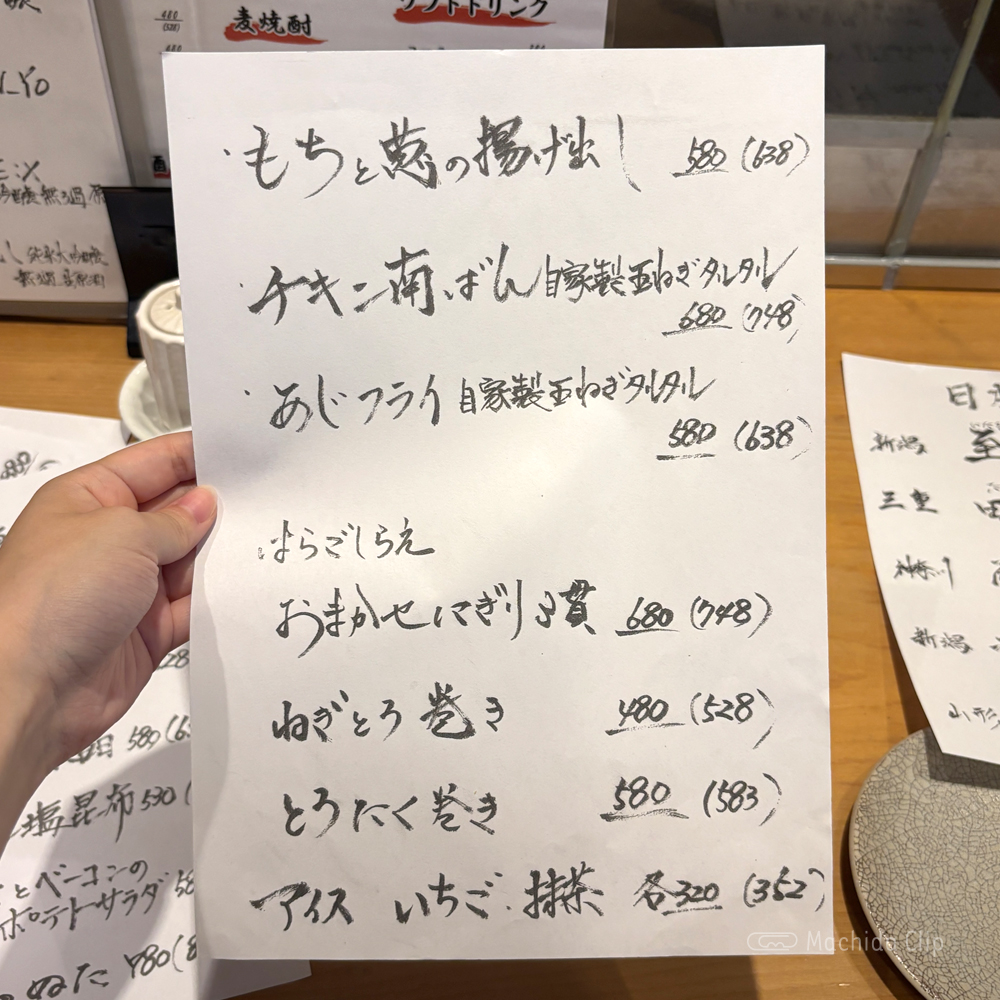 ・もちと葱の揚げ出し 580 (638)
・チキン南ばん 自家製玉ねぎタルタル
680 (748)
・あじフライ 自家製玉ねぎタルタル
580 (638)
はらごしらえ
おまかせにぎり3貫 680 (748)
ねぎとろ巻き 480 (528)
とろたく巻き 580 (583)
アイス いちご.抹茶 各320 (352)
麦焼酎
ソフトドリンク
480
(528)
新潟
三重
神奈川
新潟
山形
580
塩昆布 530
とベーコンの
ポテトサラダ
ぬた 480
Machida Clip